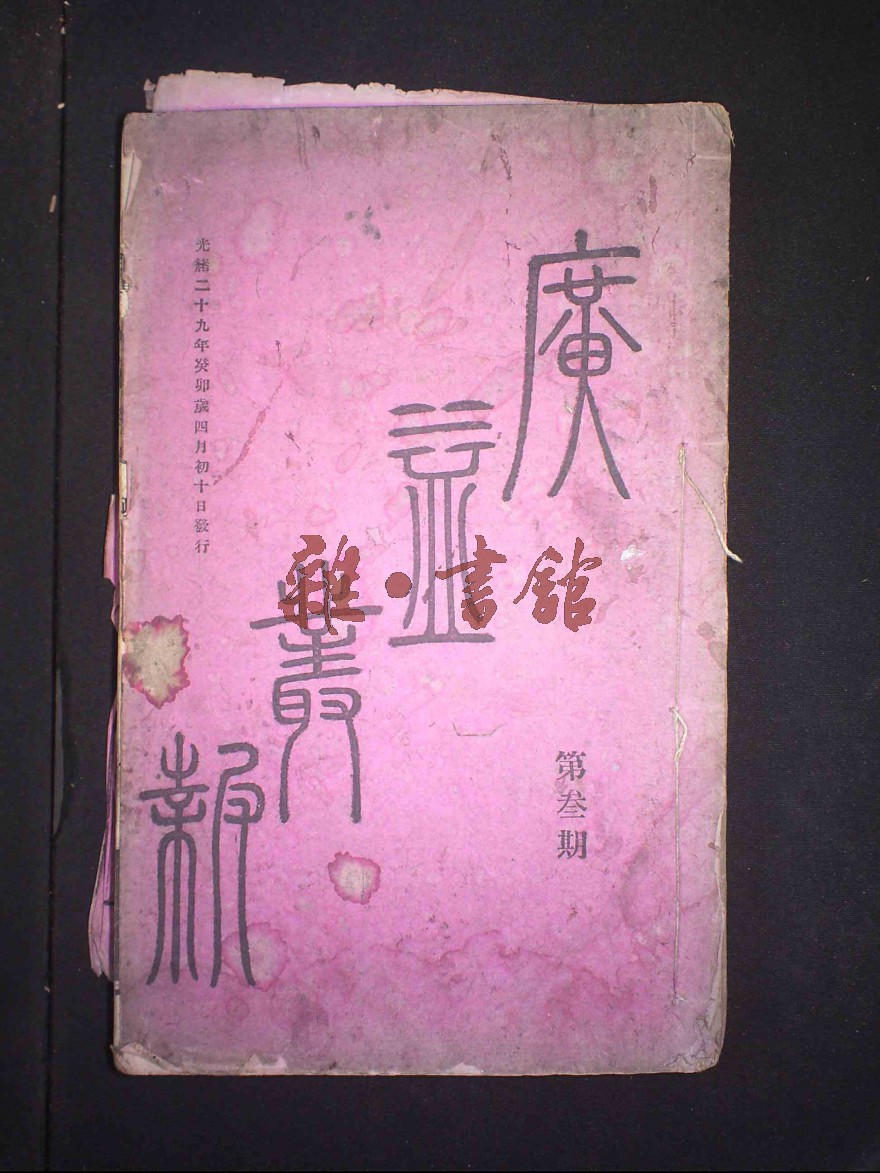 廣益叢報
第叁期
光緒二十九年癸卯歲四月初十日發行
雜·書館